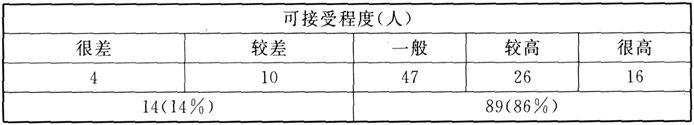 可接受程度(人)
很差 较差 一般 较高 很高
4 10 47 26 16
14(14%) 89(86%)